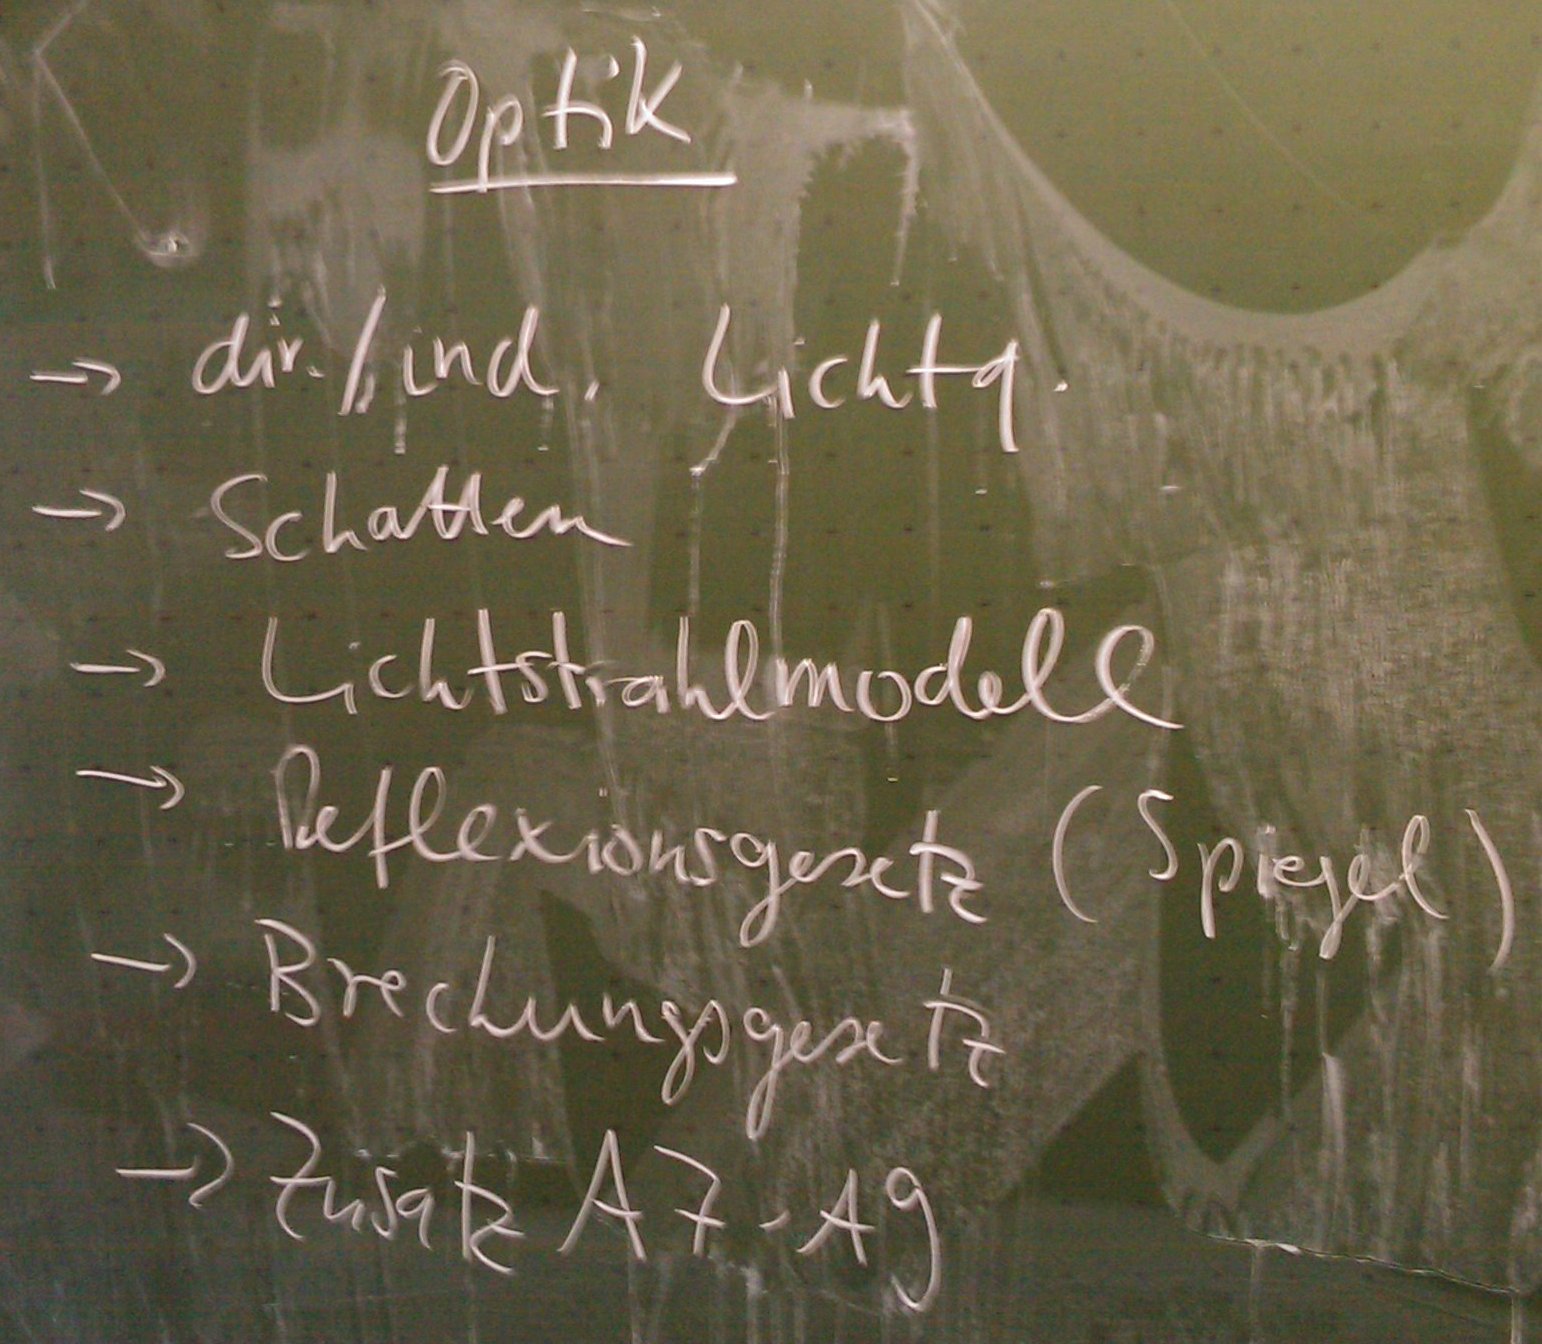 Optik
→ dir./ind. Lichtq.
→ Schatten
→ Lichtstrahlmodell
→ Reflexionsgesetz (Spiegel)
→ Brechungsgesetz
→ Zusatz A7-A9